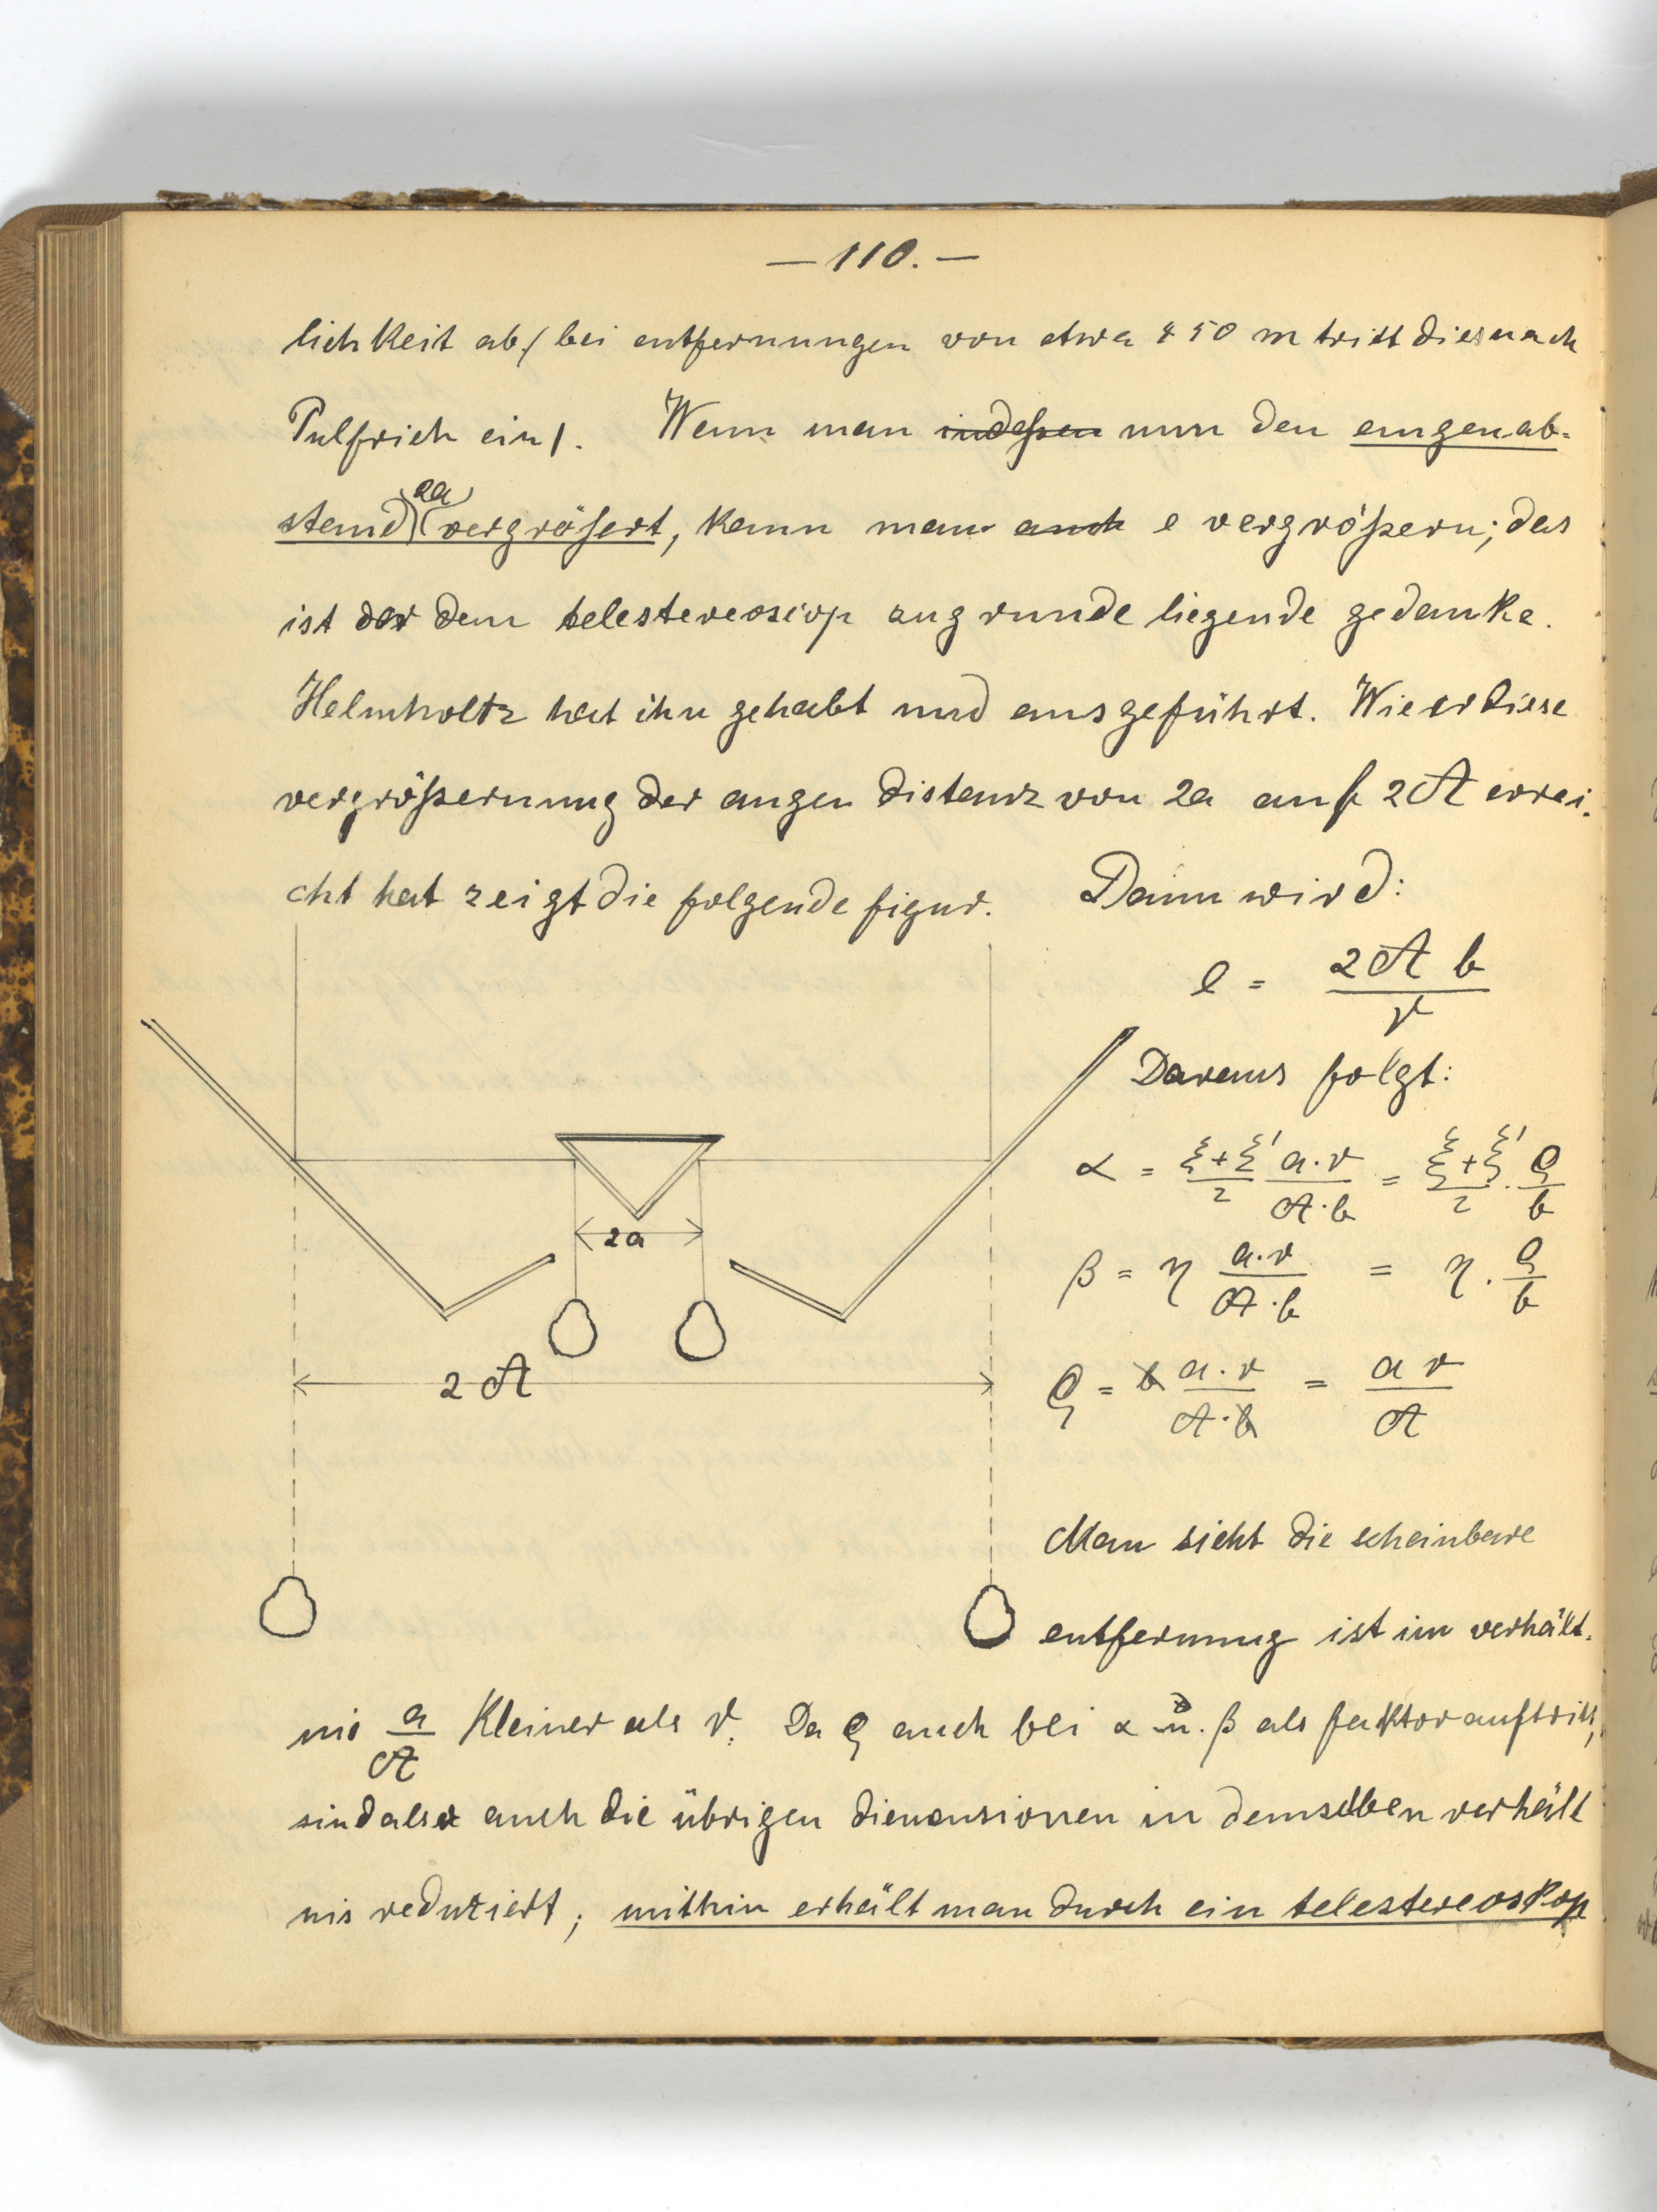 — 110. —
lichkeit ab / bei entfernungen von etwa 450 m tritt dies nach
Pulfrich ein /. Wenn man indessen nun den augenab-
stand (2a) vergrößert, kann man auch e vergrößern; das
ist der dem telestereoscop zugrunde liegende gedanke.
Helmholtz hat ihn gehabt und ausgeführt. Wie er diese
vergrößernung der augendistanz von 2a auf 2A errei-
cht hat zeigt die folgende figur. Dann wird:
e = 2A b / r
Daraus folgt:
α = (ξ+ξ')/2 · a·r / A·b = (ξ+ξ')/2 · ϱ/b
β = η a·r / A·b = η · ϱ/b
ϱ = b a·r / A·b = a r / A
2a
2A
Man sieht die scheinbare
entfernung ist im verhält-
nis a/A kleiner als r. Da ϱ auch bei α u. β als faktor auftritt,
sind also auch die übrigen dimensionen in demselben verhält
nis reduziert; mithin erhält man durch ein telestereoskop